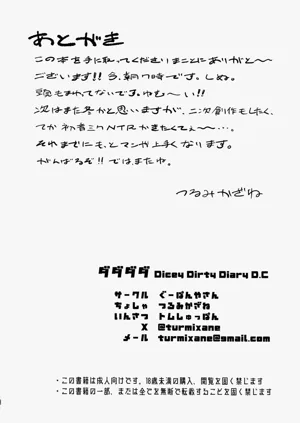 あとがき
この本を手に取ってくださいまことにありがと〜
ございます!! 今、朝7時です。しぬ。
頭もまわてないです。ゆむ〜い!!
次はまた冬かと思いますが、二次創作もしたく、
てか初音ミクNTRかきたくてぇ〜…。
それまでにも、とマンガ上手くなります。
がんばるぞ!! ではまたね。
つるみかざね
ダダダダ Dicey Dirty Diary D.C
サークル ぐーぱんやさん
ちょしゃ つるみかざね
いんさつ トムしゅっぱん
X @turmixane
メール turmixane@gmail.com
・この書籍は成人向けです。18歳未満の購入、閲覧を固く禁じます
・この書籍の一部、または全てを無断で転載することを固く禁じます